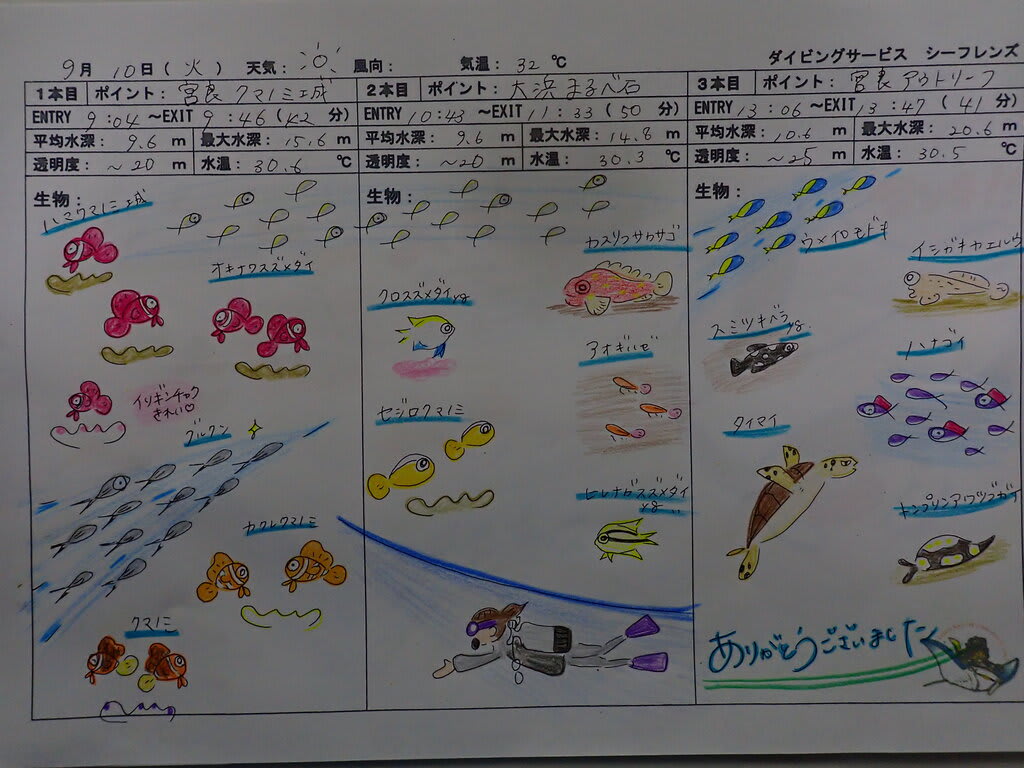 ダイビングサービス シーフレンズ
9月 10日( 火 ) 天気: 風向: 気温: 32 ℃
1本目 ポイント: 宮良 クマノミ城
ENTRY 9:04 ～EXIT 9:46 (42 分)
平均水深: 9.6 m 最大水深: 15.6 m
透明度: ～20 m 水温: 30.6 ℃
生物:
ハマクマノミ城
オキナワスズメダイ
イソギンチャク
きれい♡
グルクン
カクレクマノミ
クマノミ
2本目 ポイント: 大浜 まるべ石
ENTRY 10:43 ～EXIT 11:33 (50 分)
平均水深: 9.6 m 最大水深: 14.8 m
透明度: ～20 m 水温: 30.3 ℃
生物:
カスリフサカサゴ
クロスズメダイyg
アオギハゼ
セジロクマノミ
ヒレナガスズメダイ
yg
3本目 ポイント: 宮良 アウトリーフ
ENTRY 13:06 ～EXIT 13:47 (41 分)
平均水深: 10.6 m 最大水深: 20.6 m
透明度: ～25 m 水温: 30.5 ℃
生物:
ウメイロモドキ
イシガキカエルウオ
スミツキベラ
yg.
ハナゴイ
タイマイ
トンプソンアワツブガイ
ありがとうございました